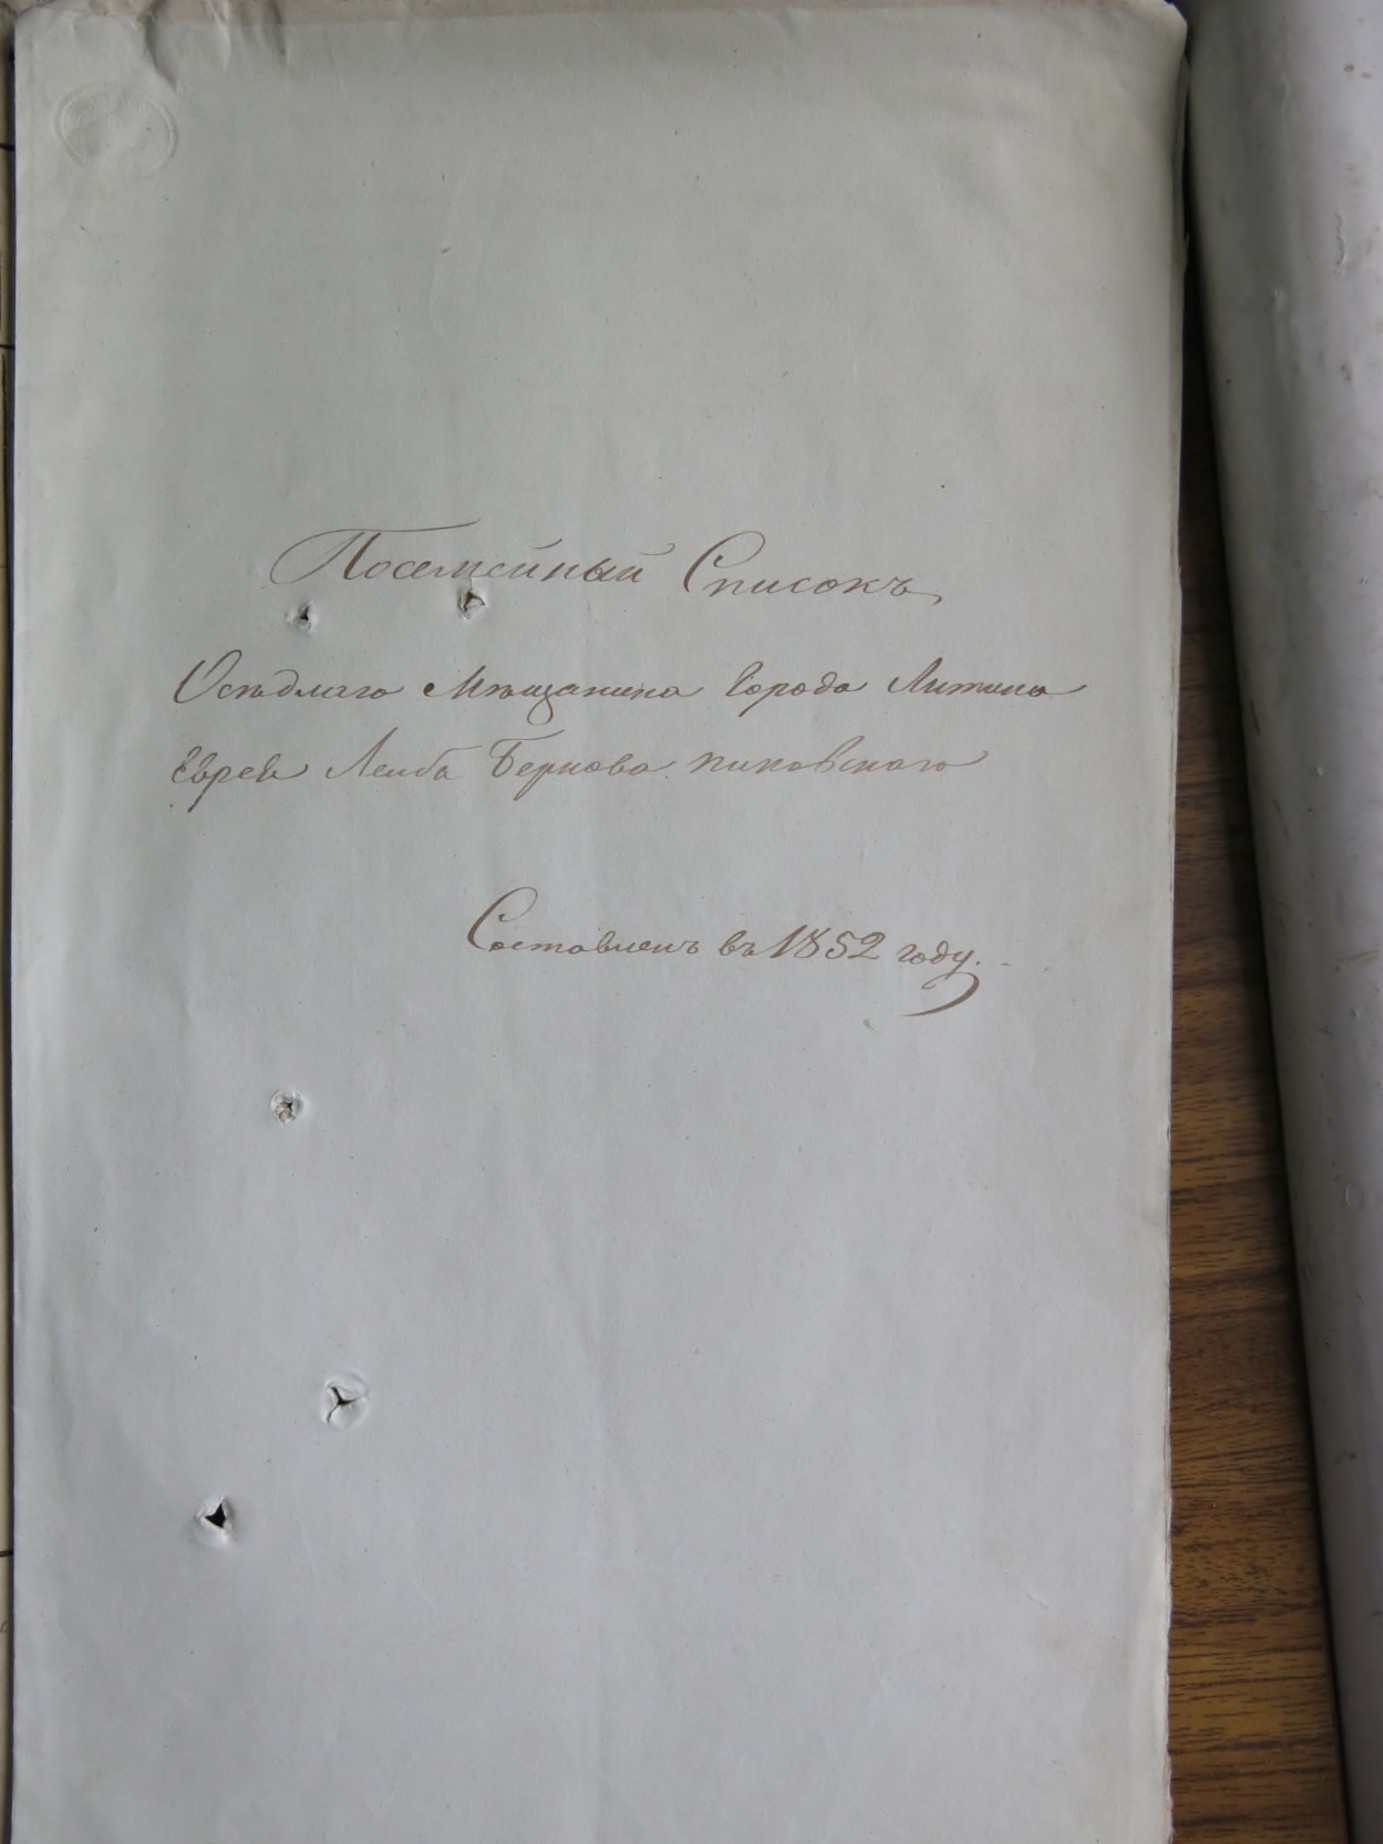 Посемейный Списокъ
Осѣдлаго Мѣщанина Города Литина
Еврея Лейба Беркова Пиковскаго
Составленъ въ 1852 году.